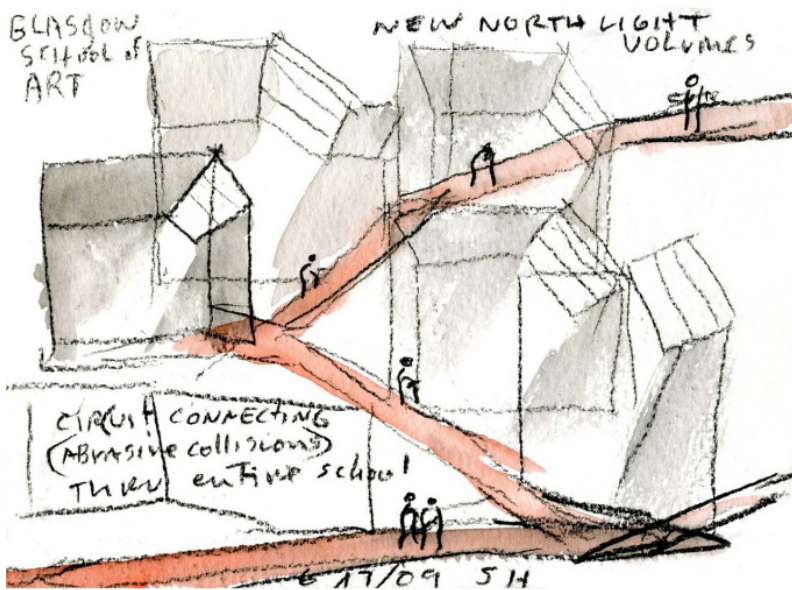 GLASGOW
SCHOOL of
ART
NEW NORTH LIGHT
VOLUMES
CIRUIT CONNECTING
(ABRASIVE collisions)
THRU entire school
6 17/09 SH